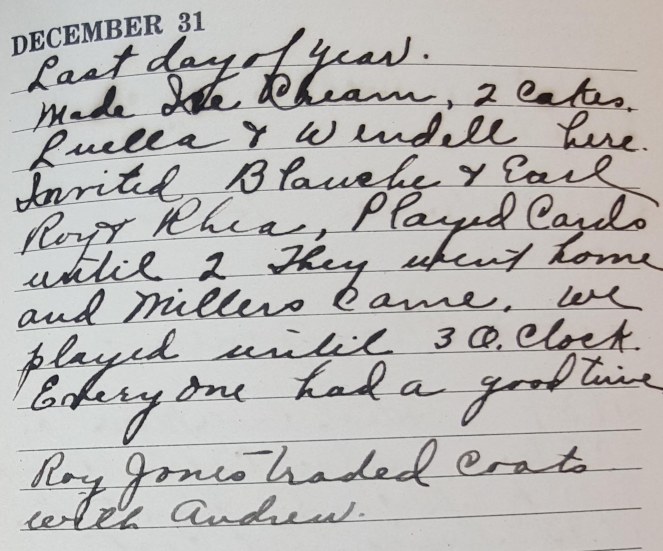 DECEMBER 31
Last day of year.
Made Ice Cream, 2 Cakes.
Luella & Wendell here.
Invited Blanche & Earl
Roy & Rhea, Played Cards
until 2 They went home
and Millers Came. We
played until 3 O.Clock.
Everyone had a good time
Roy Jones traded Coats
with Andrew.